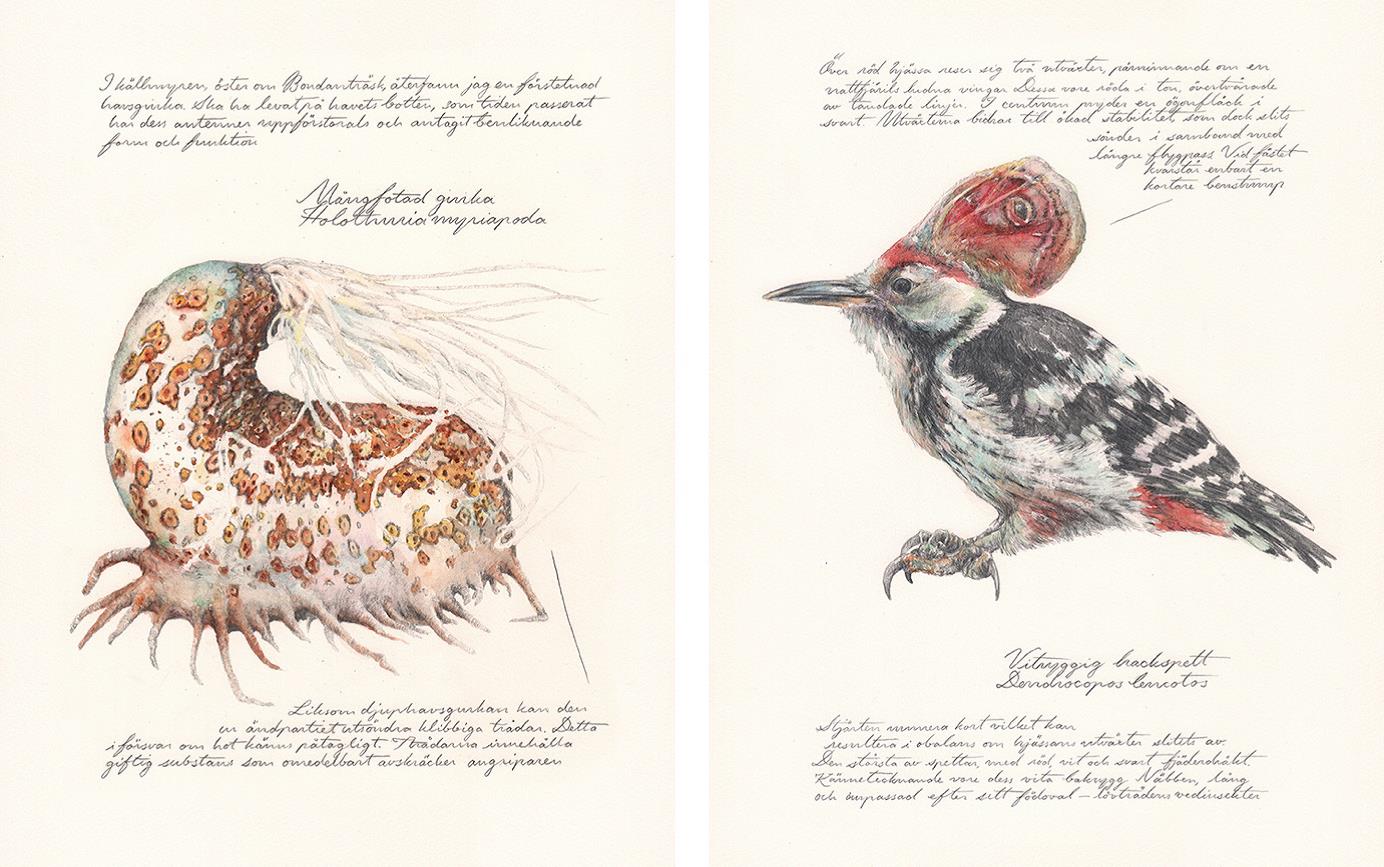 I källmyren, öster om Bondanträsk, återfann jag en förstenad
havsgurka. Ska ha levat på havets botten, som tiden passerat
har dess antenner uppförstorats och antagit benliknande
form och funktion
Mångfotad gurka
Holothuria myriapoda
Liksom djuphavsgurkan kan den
ur ändpartiet utsöndra klibbiga trådar. Detta
i försvar om hot känns påtagligt. Trådarna innehålla
giftig substans som omedelbart avskräcker angriparen
Över röd hjässa reser sig två utväxter, påminnande om en
nattfjärils ludna vingar. Dessa vore röda i ton, övertvärade
av tandade linjer. I centrum pryder en ögonfläck i
svart. Utväxterna bidrar till ökad stabilitet, som dock slits
sönder i samband med
längre flygpass. Vid fästet
kvarstår enbart en
kortare benstump
Vitryggig hackspett
Dendrocopos leucotos
Stjärten numera kort vilket kan
resultera i obalans om hjässans utväxter slitets av.
Den största av spettar, med röd, vit och svart fjäderdräkt
Kännetecknande vore dess vita bakrygg. Näbben, lång
och anpassad efter sitt födoval – lövträdens vedinsekter